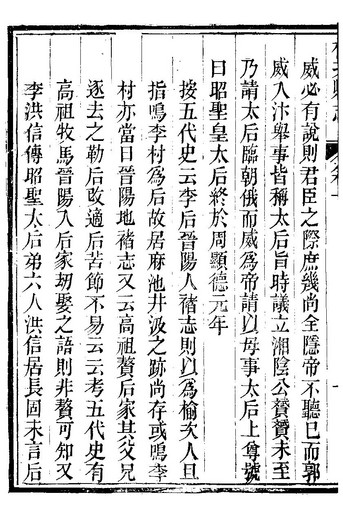 威必有說則君臣之際庶幾尚全隱帝不聽已而郭
威入汴舉事皆稱太后旨時議立湘陰公贇贇未至
乃請太后臨朝俄而威爲帝請以母事太后上尊號
曰昭聖皇太后終於周顯德元年
按五代史云李后晉陽人褚志則以爲榆次人且
指鳴李村爲后故居麻池井汲之跡尚存或鳴李
村亦當日晉陽地褚志又云高祖贅后家其父兄
逐去之勒后改適后苦節不易云云考五代史有
高祖牧馬晉陽入后家刼娶之語則非贅可知又
李洪信傳昭聖太后弟六人洪信居長固未言后